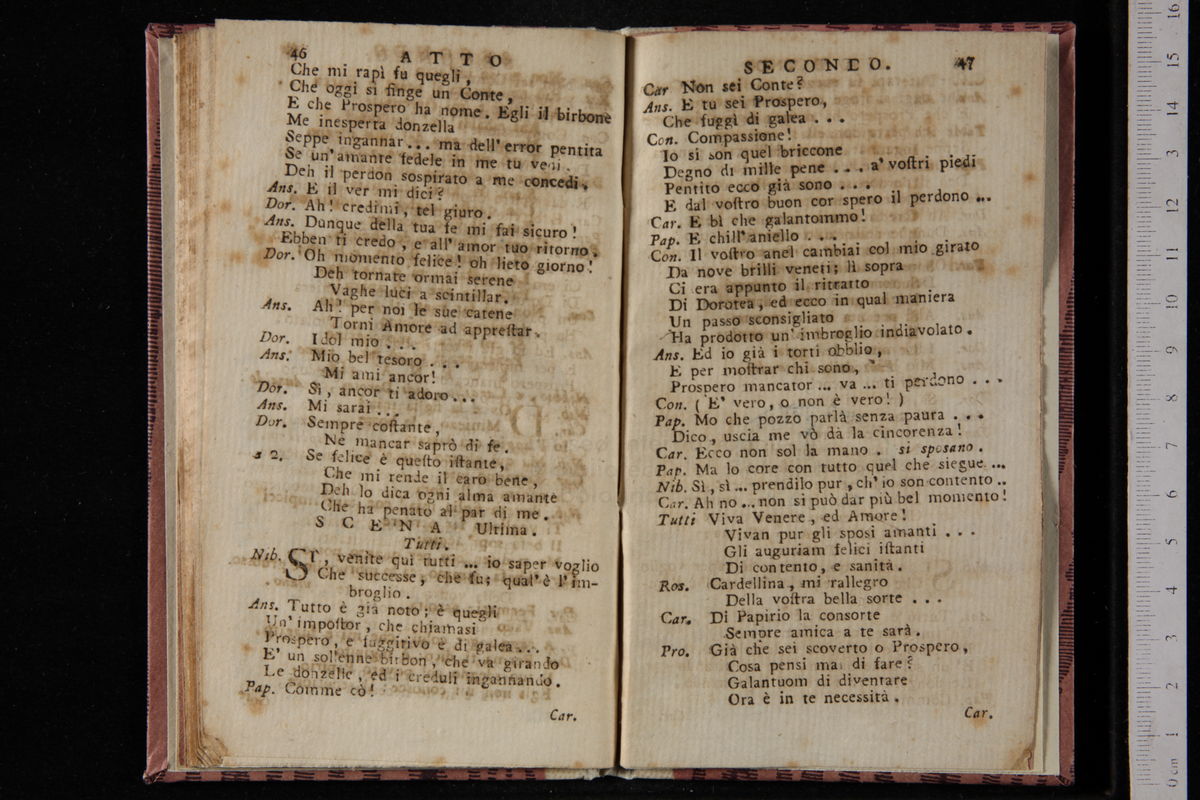 46 ATTO
Che mi rapì fu quegli,
Che oggi si finge un Conte,
E che Prospero ha nome. Egli il birbone
Me inesperta donzella
Seppe ingannar... ma dell' error pentita
Se un' amante fedele in me tu vedi.
Deh il perdon sospirato a me concedi.
Ans. E il ver mi dici?
Dor. Ah! credimi, tel giuro.
Ans. Dunque della tua fe mi fai sicuro!
Ebben ti credo, e all' amor tuo ritorno.
Dor. Oh momento felice! oh lieto giorno!
Deh tornate ormai serene
Vaghe luci a scintillar.
Ans. Ah! per noi le sue catene
Torni Amore ad appreſtar.
Dor. Idol mio...
Ans. Mio bel tesoro...
Mi ami ancor!
Dor. Sì, ancor ti adoro...
Ans. Mi sarai...
Dor. Sempre coſtante,
Nè mancar saprò di fe.
a 2. Se felice è queſto iſtante,
Che mi rende il caro bene,
Deh lo dica ogni alma amante
Che ha penato al par di me.
SCENA Ultima.
Tutti.
Nib. SI', venite qui tutti... io saper voglio
Che successe, che fu; qual' è l' im-
broglio.
Ans. Tutto è già noto; è quegli
Un' impoſtor, che chiamasi
Prospero, e fuggitivo è di galea...
E' un sollenne birbon, che va girando
Le donzelle, ed i creduli ingannando.
Pap. Comme cò!
Car.
SECONDO. 47
Car Non sei Conte?
Ans. E tu sei Prospero,
Che fuggì di galea...
Con. Compassione!
Io si son quel briccone
Degno di mille pene... a' voſtri piedi
Pentito ecco già sono...
E dal voſtro buon cor spero il perdono...
Car. E bì che galantommo!
Pap. E chill' aniello...
Con. Il voſtro anel cambiai col mio girato
Da nove brilli veneti; lì sopra
Ci era appunto il ritratto
Di Dorotea, ed ecco in qual maniera
Un passo sconsigliato
Ha prodotto un' imbroglio indiavolato.
Ans. Ed io già i torti obblio,
E per moſtrar chi sono,
Prospero mancator... va... ti perdono...
Con. (E' vero, o non è vero!)
Pap. Mo che pozzo parlà senza paura...
Dico, uscia me vò dà la cincorenza!
Car. Ecco non sol la mano. si sposano.
Pap. Ma lo core con tutto quel che siegue...
Nib. Sì, sì... prendilo pur, ch' io son contento..
Car. Ah no... non si può dar più bel momento!
Tutti Viva Venere, ed Amore!
Vivan pur gli sposi amanti...
Gli auguriam felici iſtanti
Di contento, e sanità.
Ros. Cardellina, mi rallegro
Della voſtra bella sorte...
Car. Di Papirio la consorte
Sempre amica a te sarà.
Pro. Già che sei scoverto o Prospero,
Cosa pensi mai di fare?
Galantuom di diventare
Ora è in te necessità.
Car.
16
15
14
13
12
11
10
9
8
7
6
5
4
3
2
1
0 cm